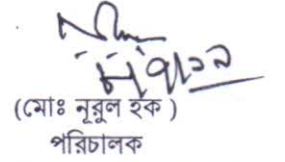 (মোঃ নূরুল হক )
পরিচালক